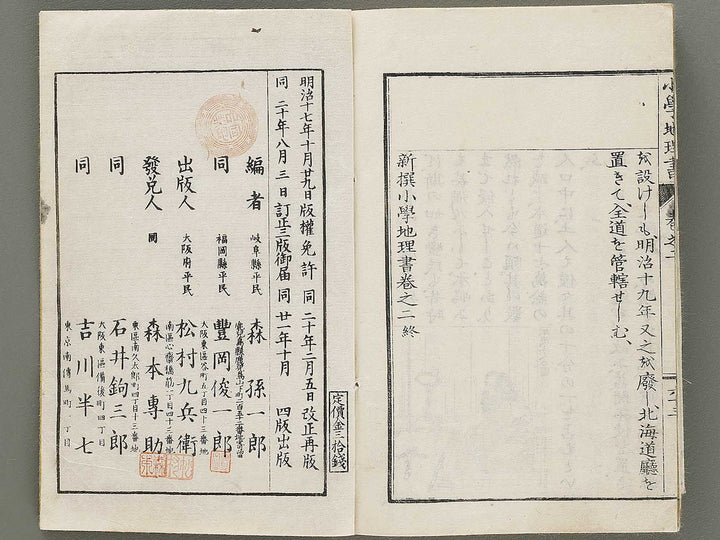 小學地理書
卷之二
を設けしも明治十九年又之を廢し北海道廳を
置きて全道を管轄せしむ、
新撰小學地理書卷之二終
明治十七年十月廿九日版權免許 同 二十年二月五日改正再版
同 二十年八月 三日訂正三版御届 同 廿一年十月 四版出版
定價金三拾錢
編者 岐阜縣平民 森孫一郎
同 福岡縣平民 豐岡俊一郎
大阪東區谷町五丁目四十三番地
出版人 大阪府平民 松村九兵衛
南區心齋橋筋一丁目四十三番地
發兌人 同 森本專助
東區南久太郎町四丁目十三番地
同 石井鉤三郎
大阪東區備後町四丁目
同 吉川半七
東京南傳馬町一丁目